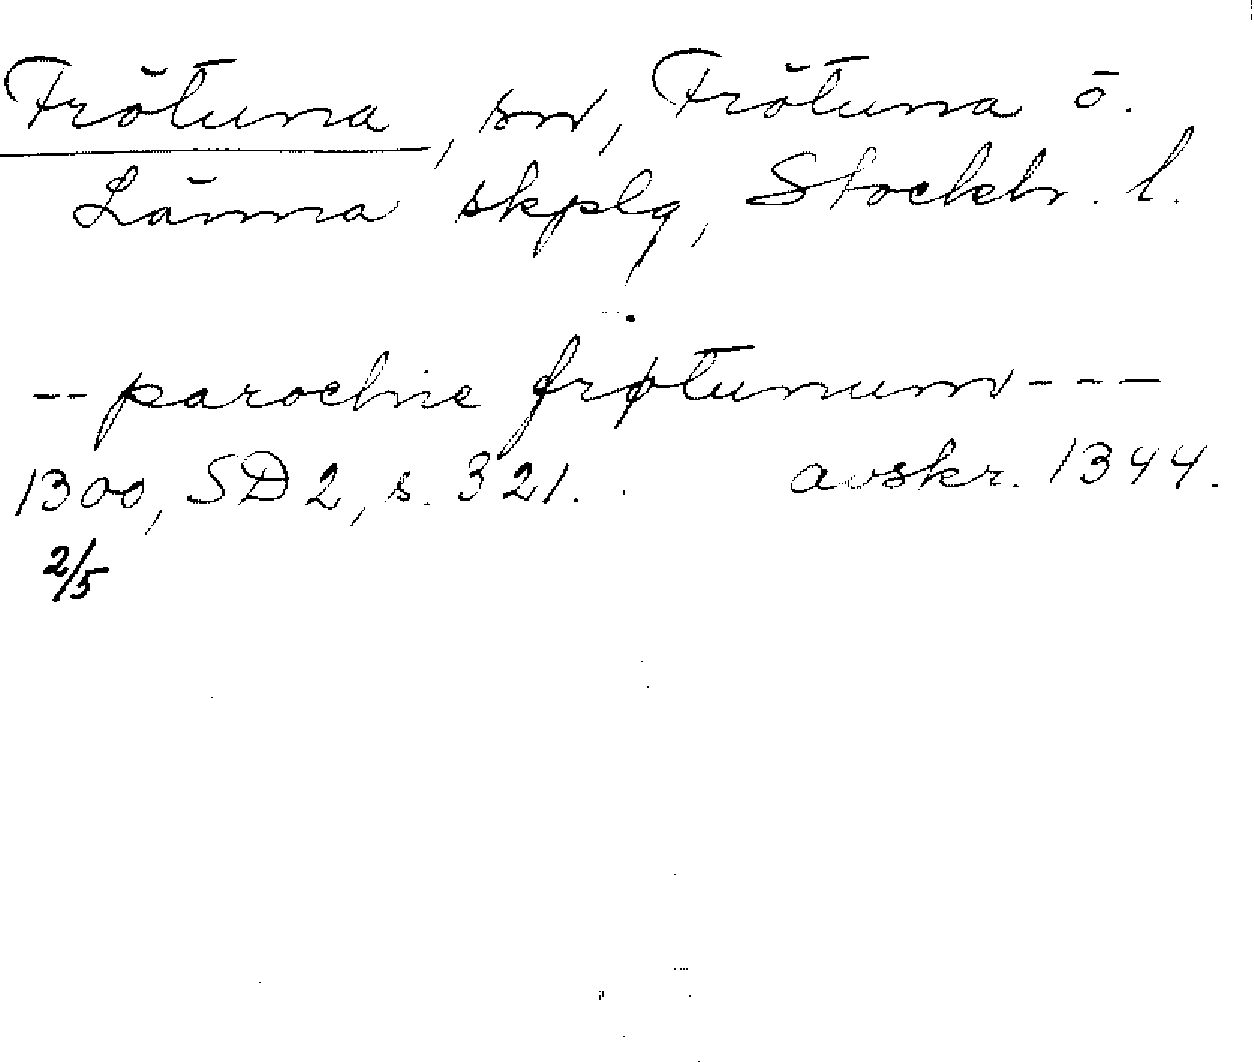 Frötuna, sn, Frötuna o.
Länna skplg, Stockh. l.
-- parochie frøtunum ---
1300, SD 2, s. 321. avskr. 1344.
2/5